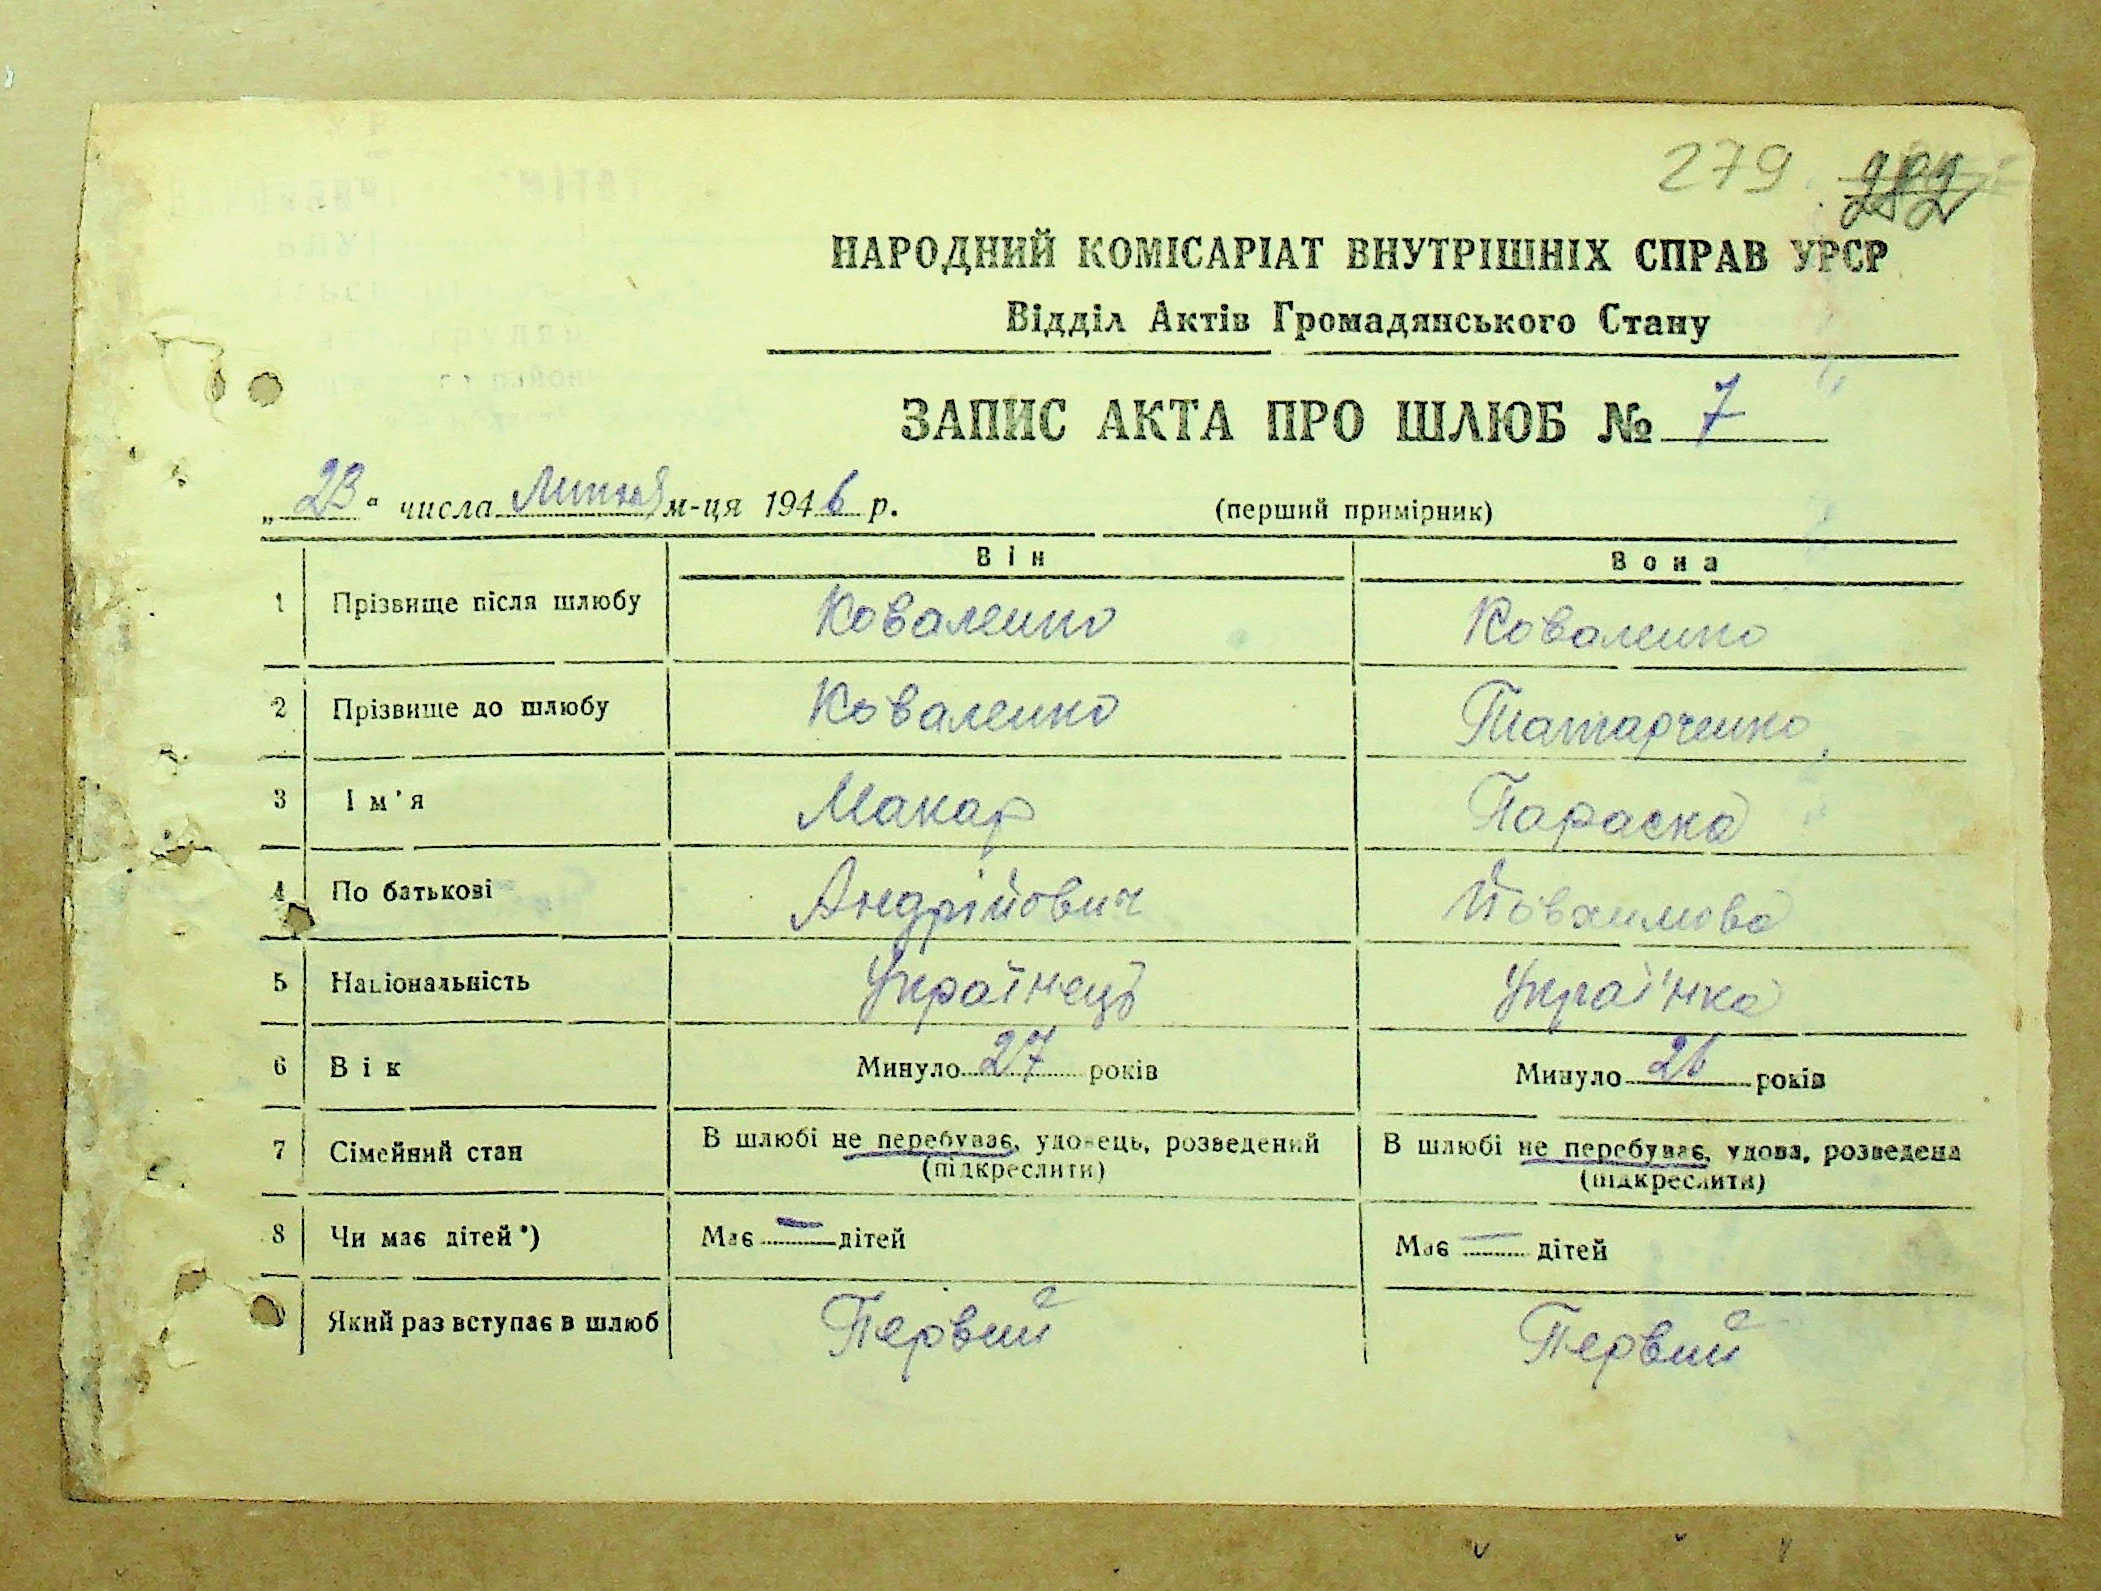 279
НАРОДНИЙ КОМІСАРІАТ ВНУТРІШНІХ СПРАВ УРСР
Відділ Актів Громадянського Стану
ЗАПИС АКТА ПРО ШЛЮБ № 7
„23“ числа м-ця 1946 р. (перший примірник)
Він Вона
1 Прізвище після шлюбу Коваленко Коваленко
2 Прізвище до шлюбу Коваленко Татарченко
3 Ім'я Макар Параска
4 По батькові Андрійович Йовхимова
5 Національність Українець Українка
6 Вік Минуло 27 років Минуло 26 років
7 Сімейний стан В шлюбі не перебуває, удовець, розведений В шлюбі не перебуває, удова, розведена
(підкреслити) (підкреслити)
8 Чи має дітей*) Має — дітей Має — дітей
Який раз вступає в шлюб Первий Первий